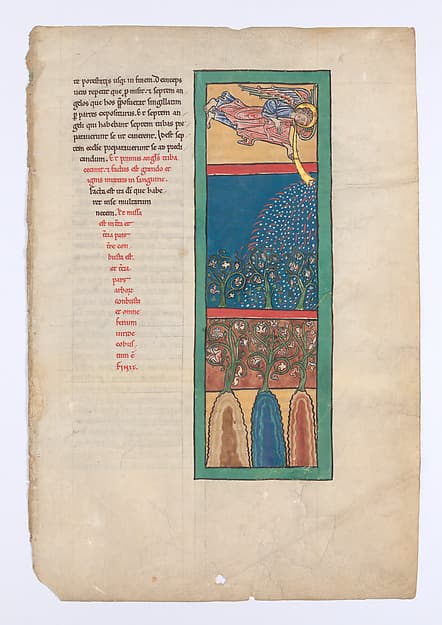 te potestatis usq; in finem. Deinceps
uero repetit que p̄misit. & septem an
gelos quos p̄posuerat singillatim
p partes expositurus. Et septem an
geli qui habebant septem tubas pre
parauerunt se ut canerent. Id est sep
tem ecclesie preparauerunt se ad predi
candum. Et primus angl's tuba
cecinit. & facta est grando et
ignis mixtus in sanguine.
facta est ira dei que habe
ret in se multarum
necem.
est in terra et
t̄cia pars
t̄re con
busta est.
et t̄cia
pars
arborū
conbusta
et omne
fenum
uiride
cobus
tum ē.